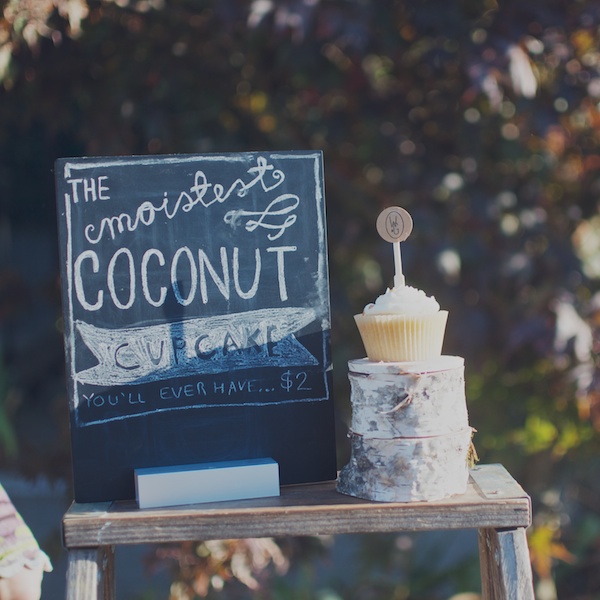 THE
moistest
COCONUT
CUPCAKE
YOU'LL EVER HAVE... $2